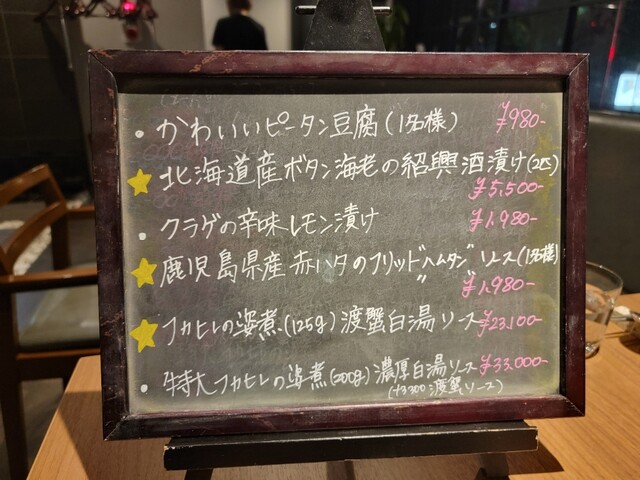 ・かわいいピータン豆腐(1名様) ¥980-
北海道産ボタン海老の紹興酒漬け(2匹)
¥5,500-
・クラゲの辛味レモン漬け ¥1,980-
鹿児島県産赤ハタのフリッド"ハムタン"ソース(1名様)
¥1,980-
フカヒレの姿煮(125g)渡蟹白湯ソース¥23,100-
・特大フカヒレの姿煮(200g)濃厚白湯ソース¥33,000-
(+3300渡蟹ソース)